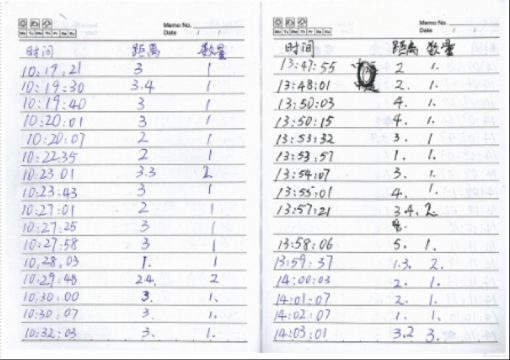 Memo No.
Mo Tu We Th Fr Sa Su Date / /
时间 距离 数量
10:19:21 3 1
10:19:30 3.4 1
10:19:40 3 1
10:20:01 3 1
10:20:07 2 1
10:22:35 2 1
10:23 01 3.3 2
10:23:43 3 1
10:27:01 2 1
10:27:25 3 1
10:27:58 3 1
10:28:03 1. 1
10:29:48 2.4. 2
10:30:00 3. 1.
10:30:07 3. 1.
10:32:03 3. 1.
Memo No.
Mo Tu We Th Fr Sa Su Date / /
时间 距离 数量
13:47:55 2 1.
13:48:01 2. 1.
13:50:03 4. 1.
13:50:15 4. 1.
13:53:32 3. 1
13:53:57 1. 1.
13:54:07 3. 1.
13:55:01 4. 1.
13:57:21 3 4. 2.
13:58:06 5. 1.
13:59:37 1.3. 2.
14:00:03 2. 1.
14:01:07 2. 1.
14:02:07 1. 1.
14:03:01 3.2 3.